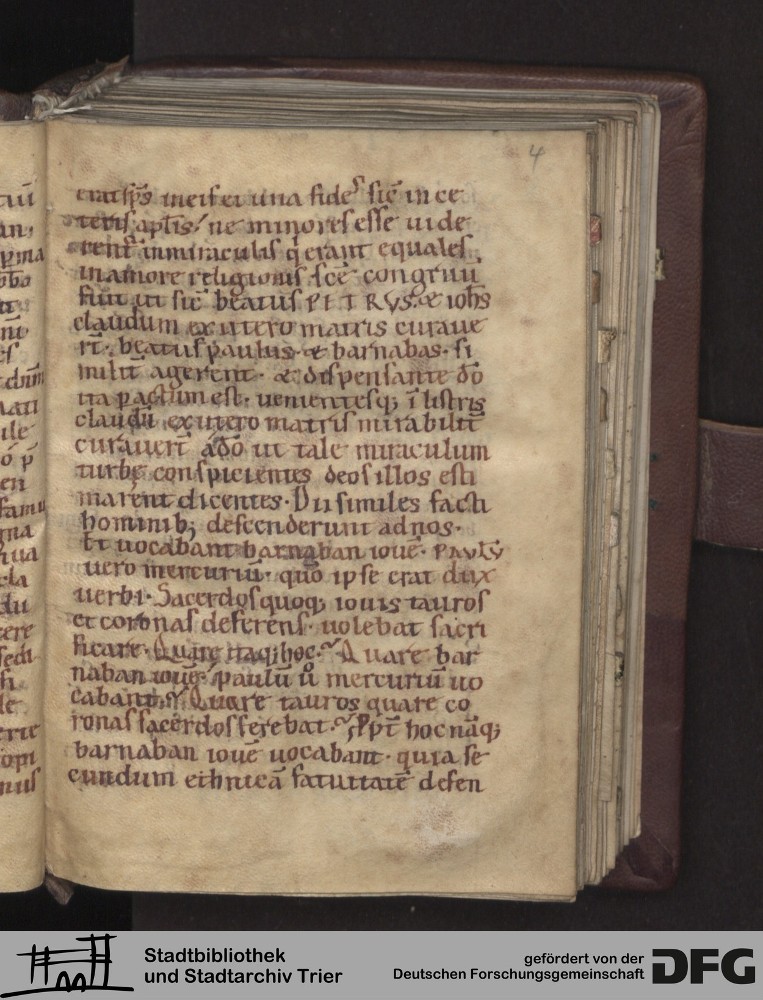 4
erat sp̄s ineis et una fides sic̄ in ce
teris aplīs / ne minores esse uide
rent̄ inmiraculis q̇ erant equales.
inamore religionis. sc̄e congruu
fuit ut sic̄ beatus PETRVS. & ioh̄s
claudum ex utero matris curaue
rt̄. beatus paulus & barnabas. si
milit̄ agerent. & dispensante dō
ita pactum est. uenientesq; ī listris
claudū ex utero matris mirabilit̄
curauert̄ adō ut tale miraculum
turbę conspicientes deos illos esti
marent dicentes. Dii similes facti
hominib; descenderunt ad nos.
Et uocabant barnaban iouē. PAVLV̄
uero mercuriū. quō ipse erat dux
uerbi. Sacerdos quoq; iouis tauros
et coronas deferens. uolebat sacri
ficare. Quare itaq; hoc. Quare bar
naban iouē. paulū ů mercuriū uo
cabant. Quare tauros quare co
ronas sacerdos ferebat. Ppt̄ hoc nāq;
barnaban iouē uocabant. quia se
cundum ethnicā fatuitatē defen
Stadtbibliothek
und Stadtarchiv Trier
gefördert von der
Deutschen Forschungsgemeinschaft
DFG